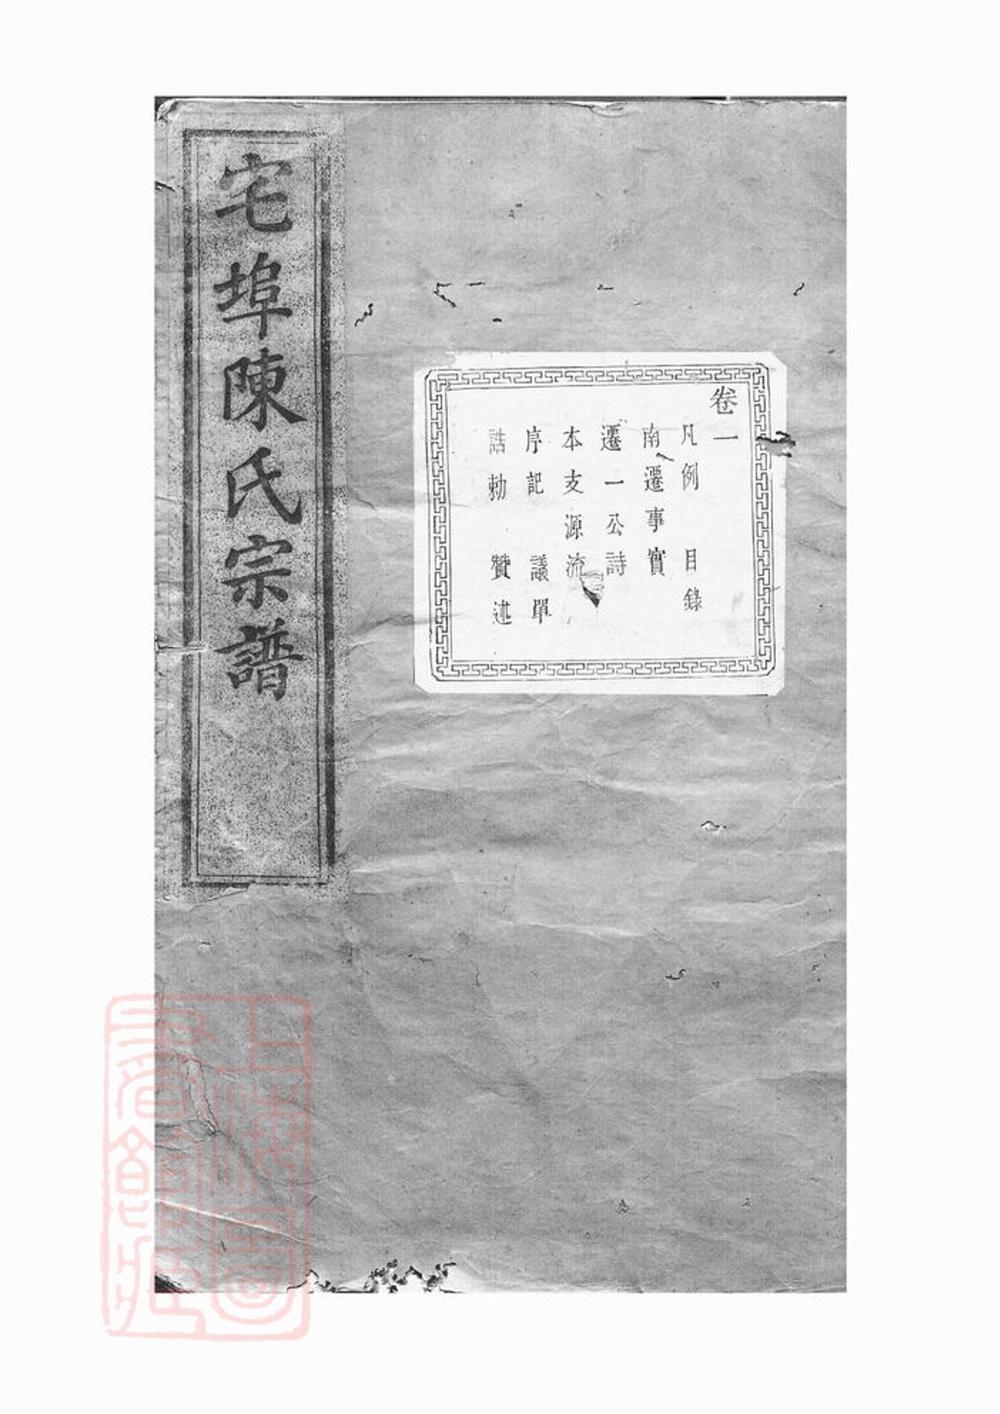 宅埠陳氏宗譜
卷一
凡例 目錄
南遷事實
遷一公詩
本支源流
序記 議單
誥勅 贊述
上海圖書館藏